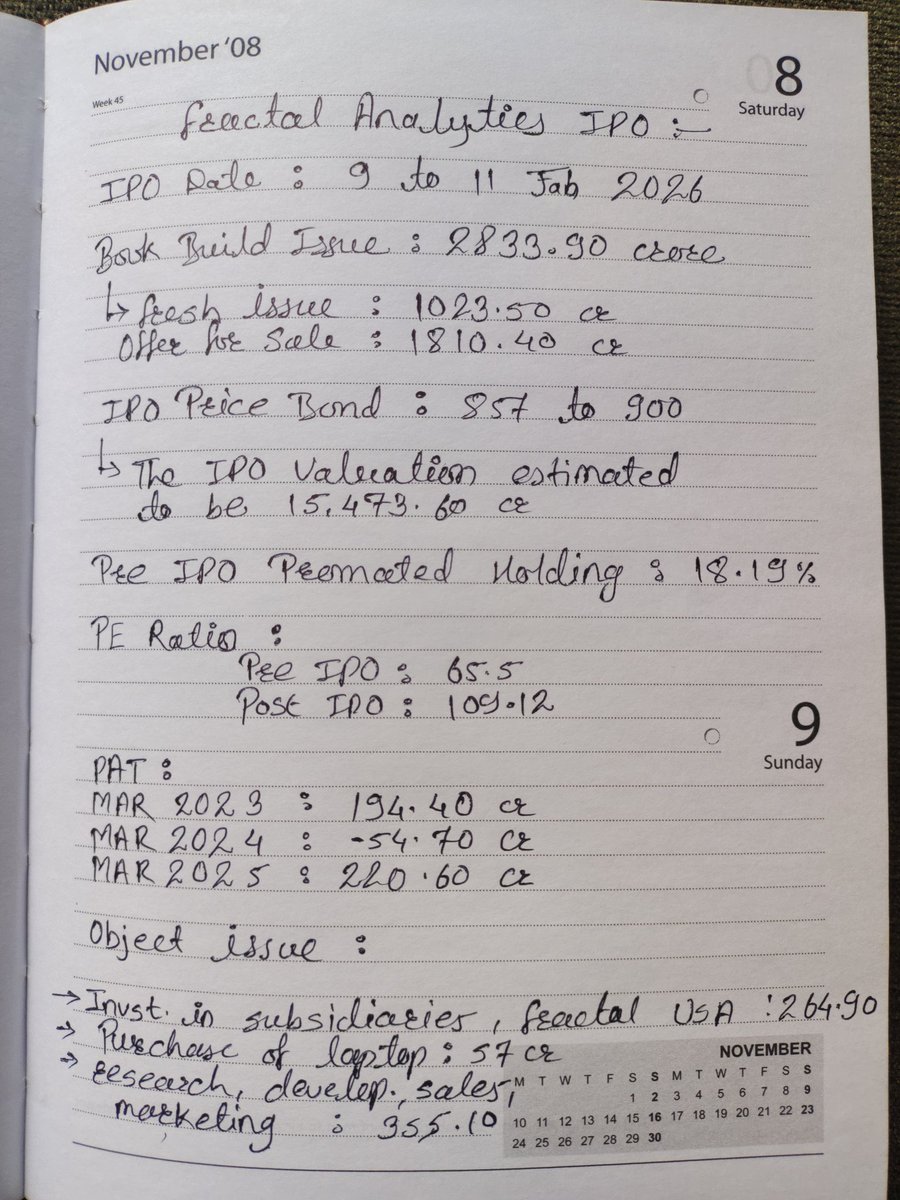 November '08
08
Week 45
Saturday
Fractal Analytics IPO :-
IPO Date : 9 to 11 Fab 2026
Book Build Issue : 2833.90 crore
↳ fresh issue : 1023.50 cr
Offer for Sale : 1810.40 cr
IPO Price Bond : 857 to 900
↳ The IPO Valuation estimated
to be 15,473.60 cr
Pre IPO Promated Holding : 18.19%
PE Ratio :
Pre IPO : 65.5
Post IPO : 109.12
9
Sunday
PAT :
MAR 2023 : 194.40 cr
MAR 2024 : -54.70 cr
MAR 2025 : 220.60 cr
Object issue :
→ Invst. in subsidiaries, fractal USA : 264.90
→ Purchase of laptop : 57 cr
→ research, develop., sales,
marketing : 355.10
NOVEMBER
M T W T F S S M T W T F S S
1 2 3 4 5 6 7 8 9
10 11 12 13 14 15 16 17 18 19 20 21 22 23
24 25 26 27 28 29 30